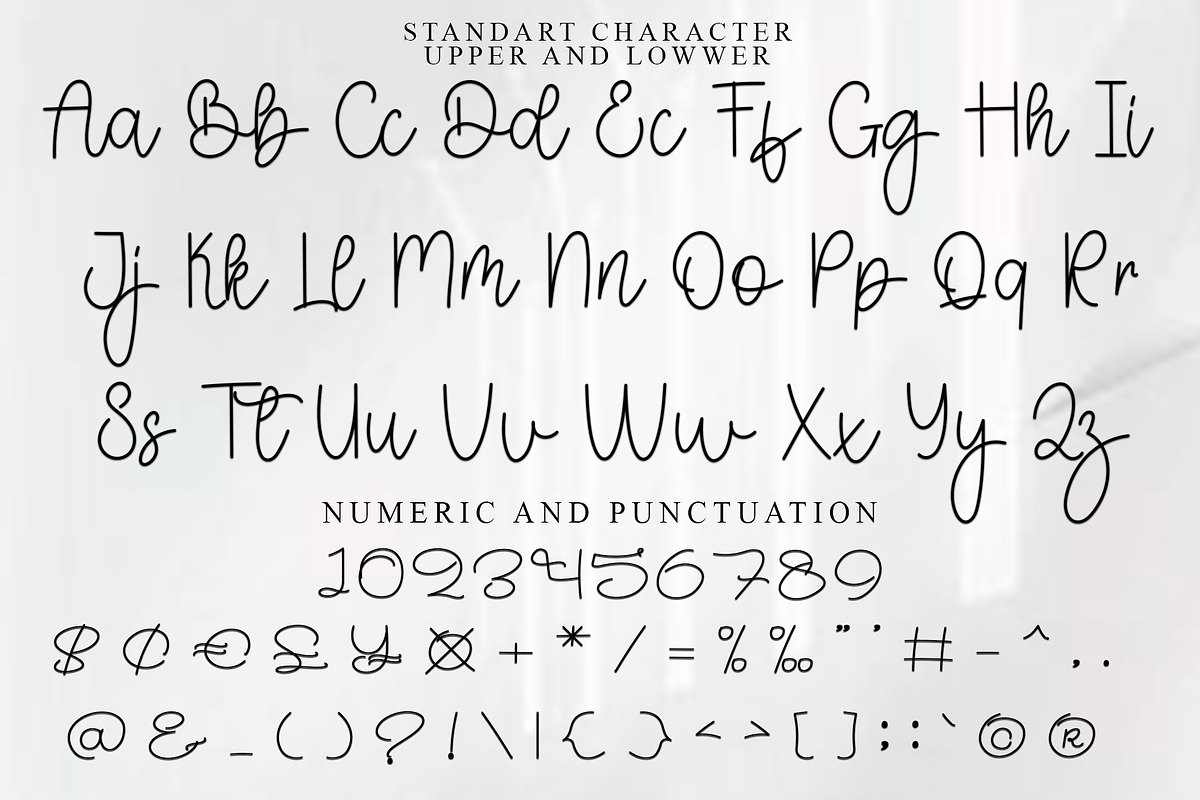 STANDART CHARACTER
UPPER AND LOWWER
Aa Bb Cc Dd Ec Ff Gg Hh Ii
Jj Kk Ll Mm Nn Oo Pp Qq Rr
Ss Tt Uu Vv Ww Xx Yy Zz
NUMERIC AND PUNCTUATION
1023456789
$ ₵ € £ ¥ ¤ + * / = % ‰ " ' # - ^ , .
@ & _ ( ) ? ! \ | { } < > [ ] ; : ` © ®